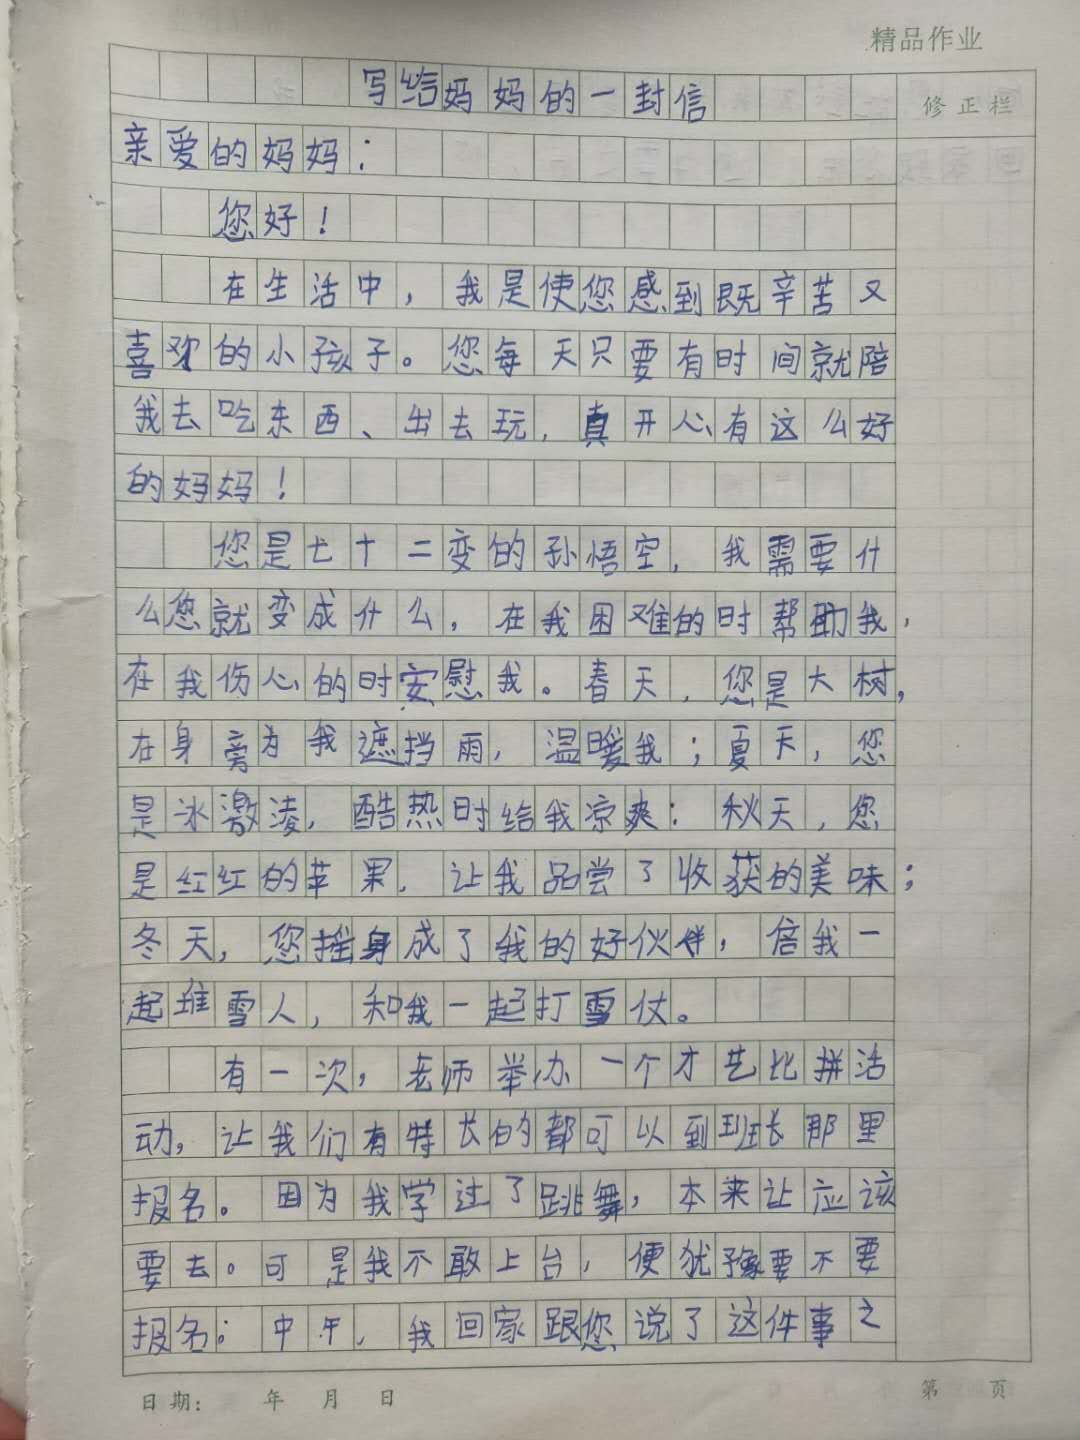 精品作业
写给妈妈的一封信
修正栏
亲爱的妈妈：
您好！
在生活中，我是使您感到既辛苦又
喜欢的小孩子。您每天只要有时间就陪
我去吃东西、出去玩，真开心有这么好
的妈妈！
您是七十二变的孙悟空，我需要什
么您就变成什么，在我困难的时帮助我，
在我伤心的时安慰我。春天，您是大树，
在身旁为我遮挡雨，温暖我；夏天，您
是冰激凌，酷热时给我凉爽；秋天，您
是红红的苹果，让我品尝了收获的美味；
冬天，您摇身成了我的好伙伴，倍我一
起堆雪人，和我一起打雪仗。
有一次，老师举办一个才艺比拼活
动，让我们有特长的都可以到班长那里
报名。因为我学过了跳舞，本来让应该
要去。可是我不敢上台，便犹豫要不要
报名；中午，我回家跟您说了这件事之
日期： 年 月 日
第 页